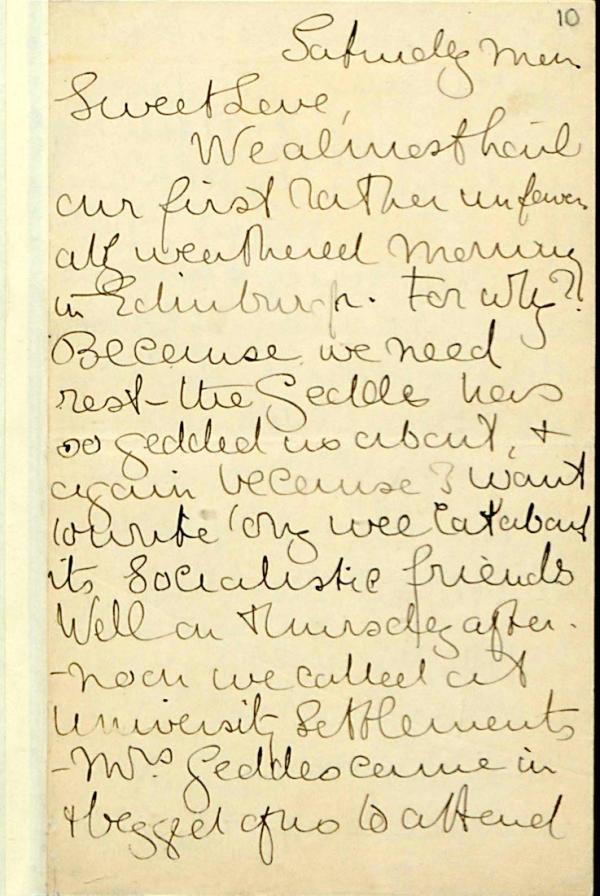 10
Saturday morn
Sweet Love,
We almost hail
our first rather unfavor-
ably weathered morning
in Edinburgh. For why?!
Because we need
rest - the Geddes has
so gedded us about, &
again because I want
to write 'ony wee cat about
its Socialistic friends
Well on Thursday after-
-noon we called at
University Settlements
-Mrs Geddes came in
& begged of us to attend